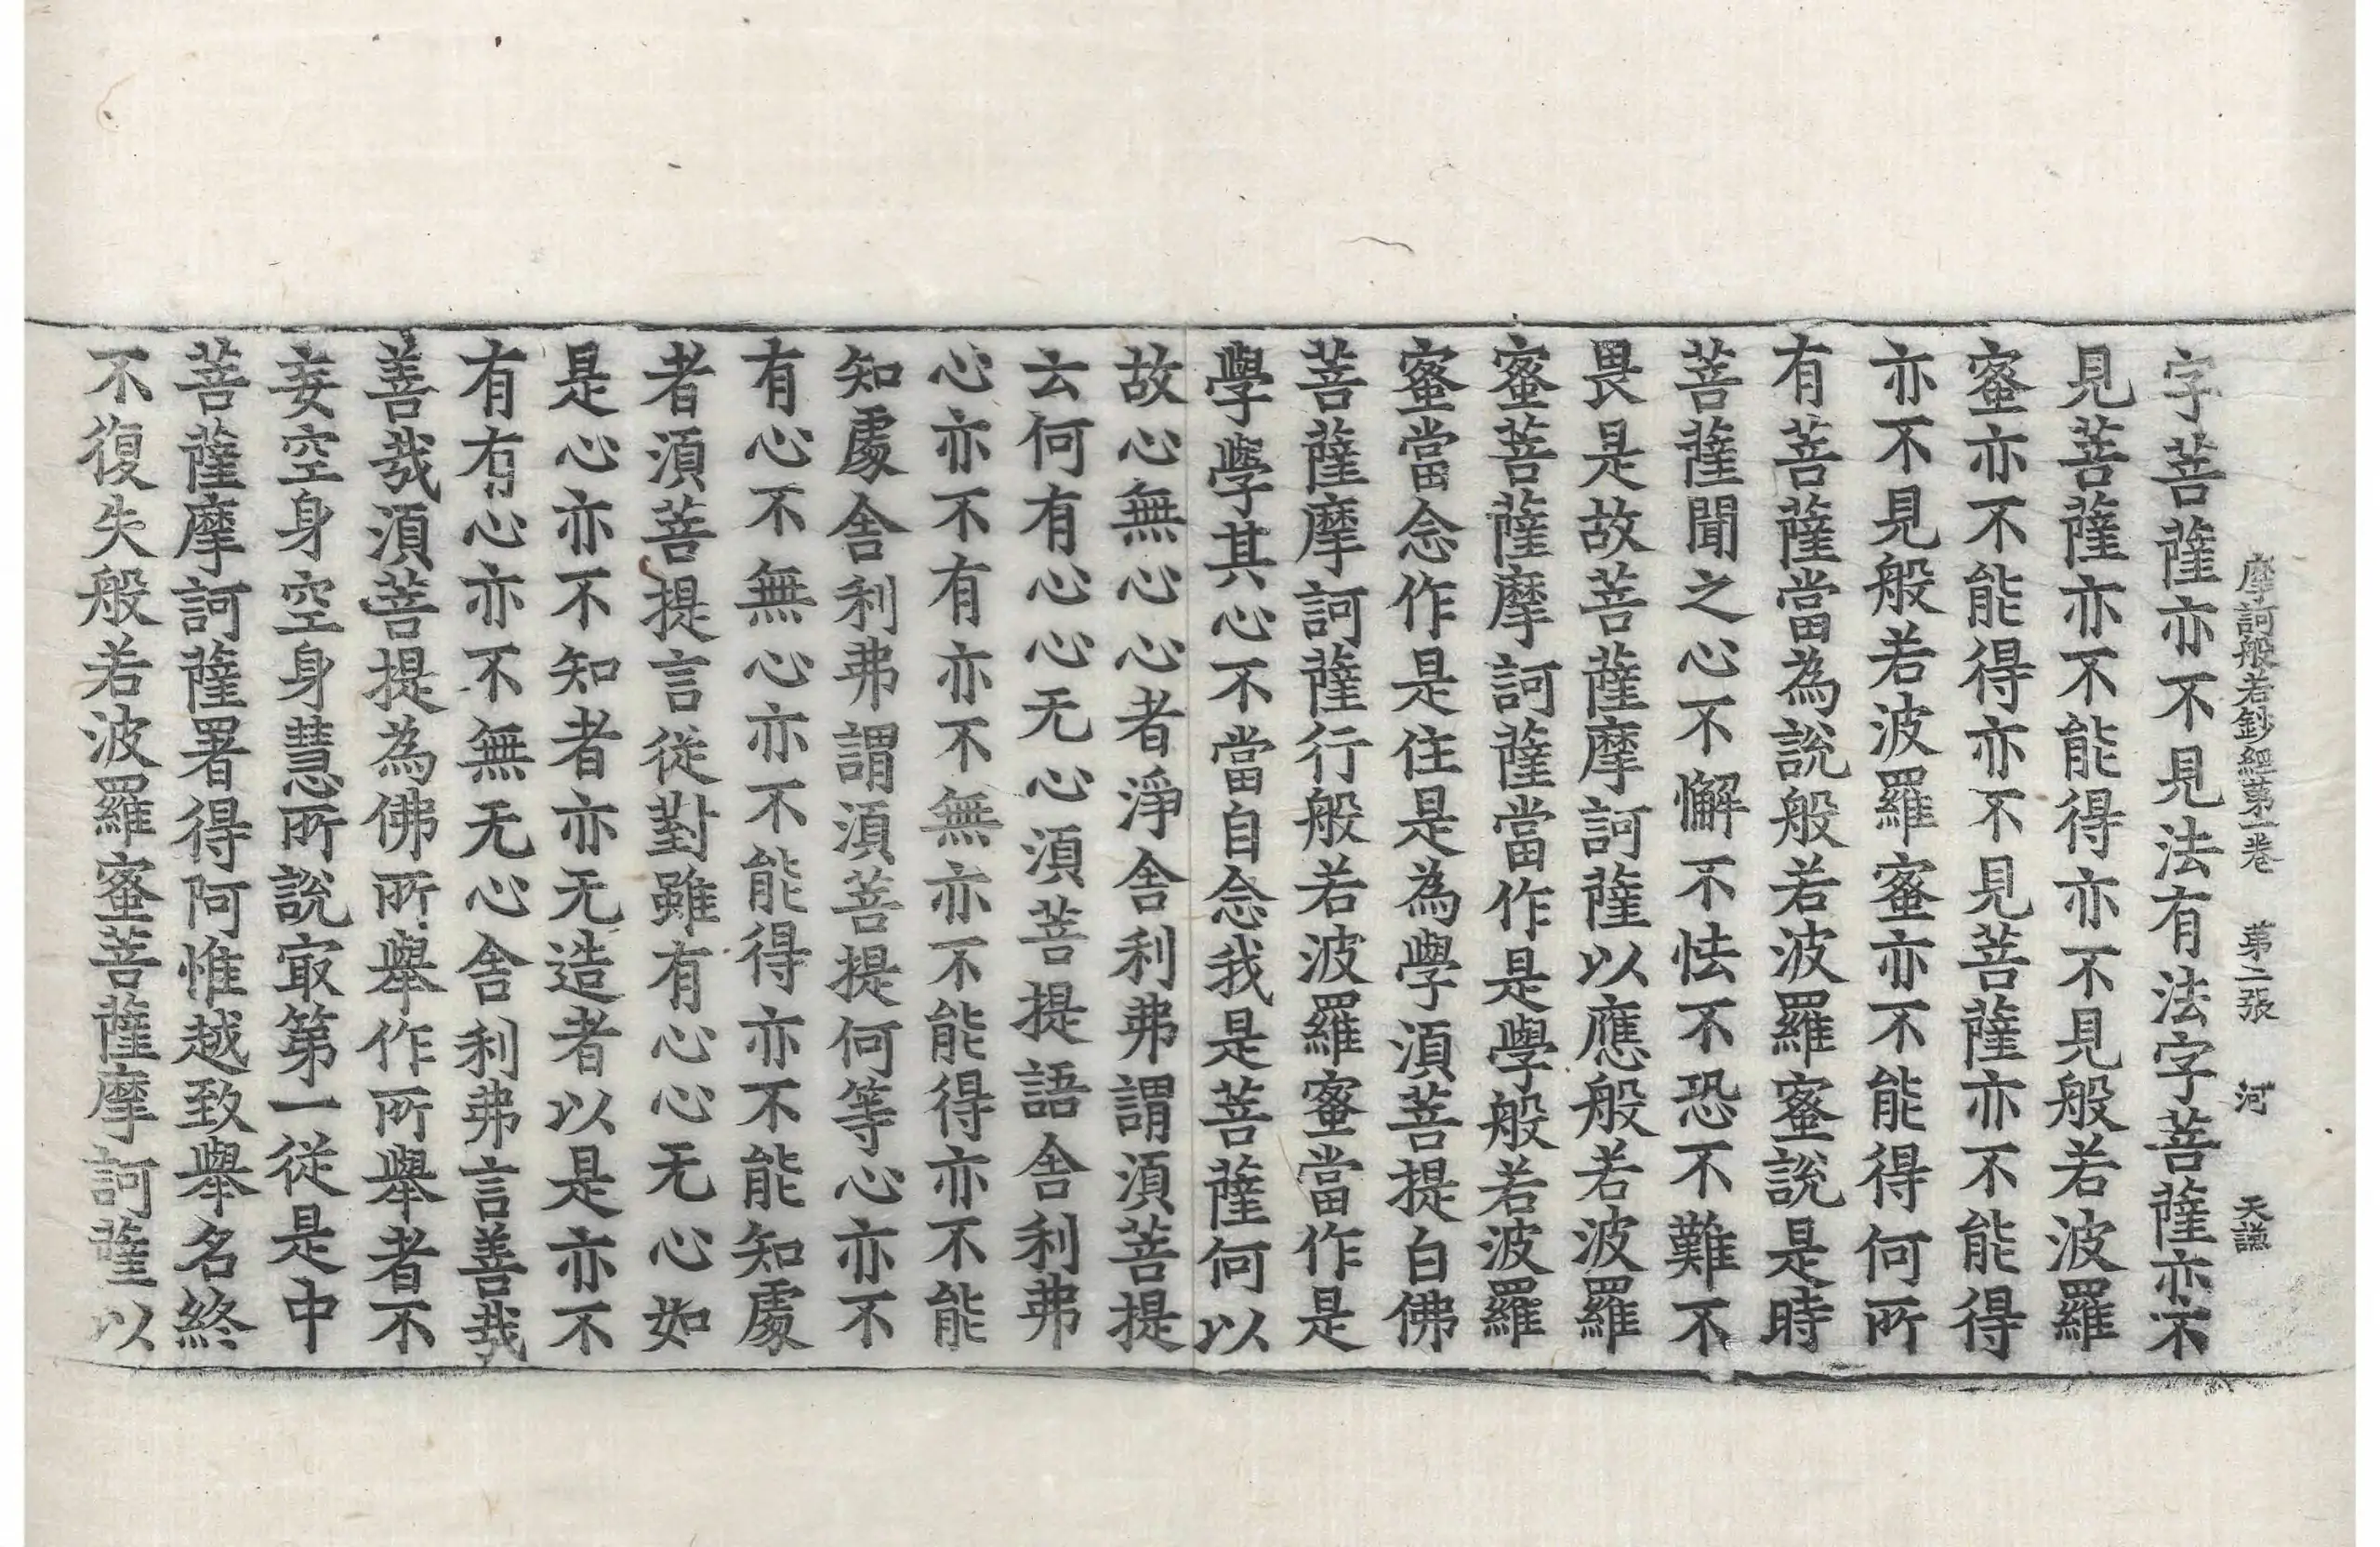 摩訶般若鈔經第一卷 第二張 河 天謙
字菩薩亦不見法有法字菩薩亦不
見菩薩亦不能得亦不見般若波羅
蜜亦不能得亦不見菩薩亦不能得
亦不見般若波羅蜜亦不能得何所
有菩薩當為說般若波羅蜜說是時
菩薩聞之心不懈不怯不恐不難不
畏是故菩薩摩訶薩以應般若波羅
蜜菩薩摩訶薩當作是學般若波羅
蜜當念作是住是為學湏菩提白佛
菩薩摩訶薩行般若波羅蜜當作是
學學其心不當自念我是菩薩何以
故心無心心者淨舍利弗謂湏菩提
云何有心心无心湏菩提語舍利弗
心亦不有亦不無亦不能得亦不能
知處舍利弗謂湏菩提何等心亦不
有心不無心亦不能得亦不能知處
者湏菩提言從對雖有心心无心如
是心亦不知者亦无造者以是亦不
有有心亦不無无心舍利弗言善哉
善哉湏菩提為佛所舉作所舉者不
妄空身空身慧所說㝡第一從是中
菩薩摩訶薩署得阿惟越致舉名終
不復失般若波羅蜜菩薩摩訶薩以